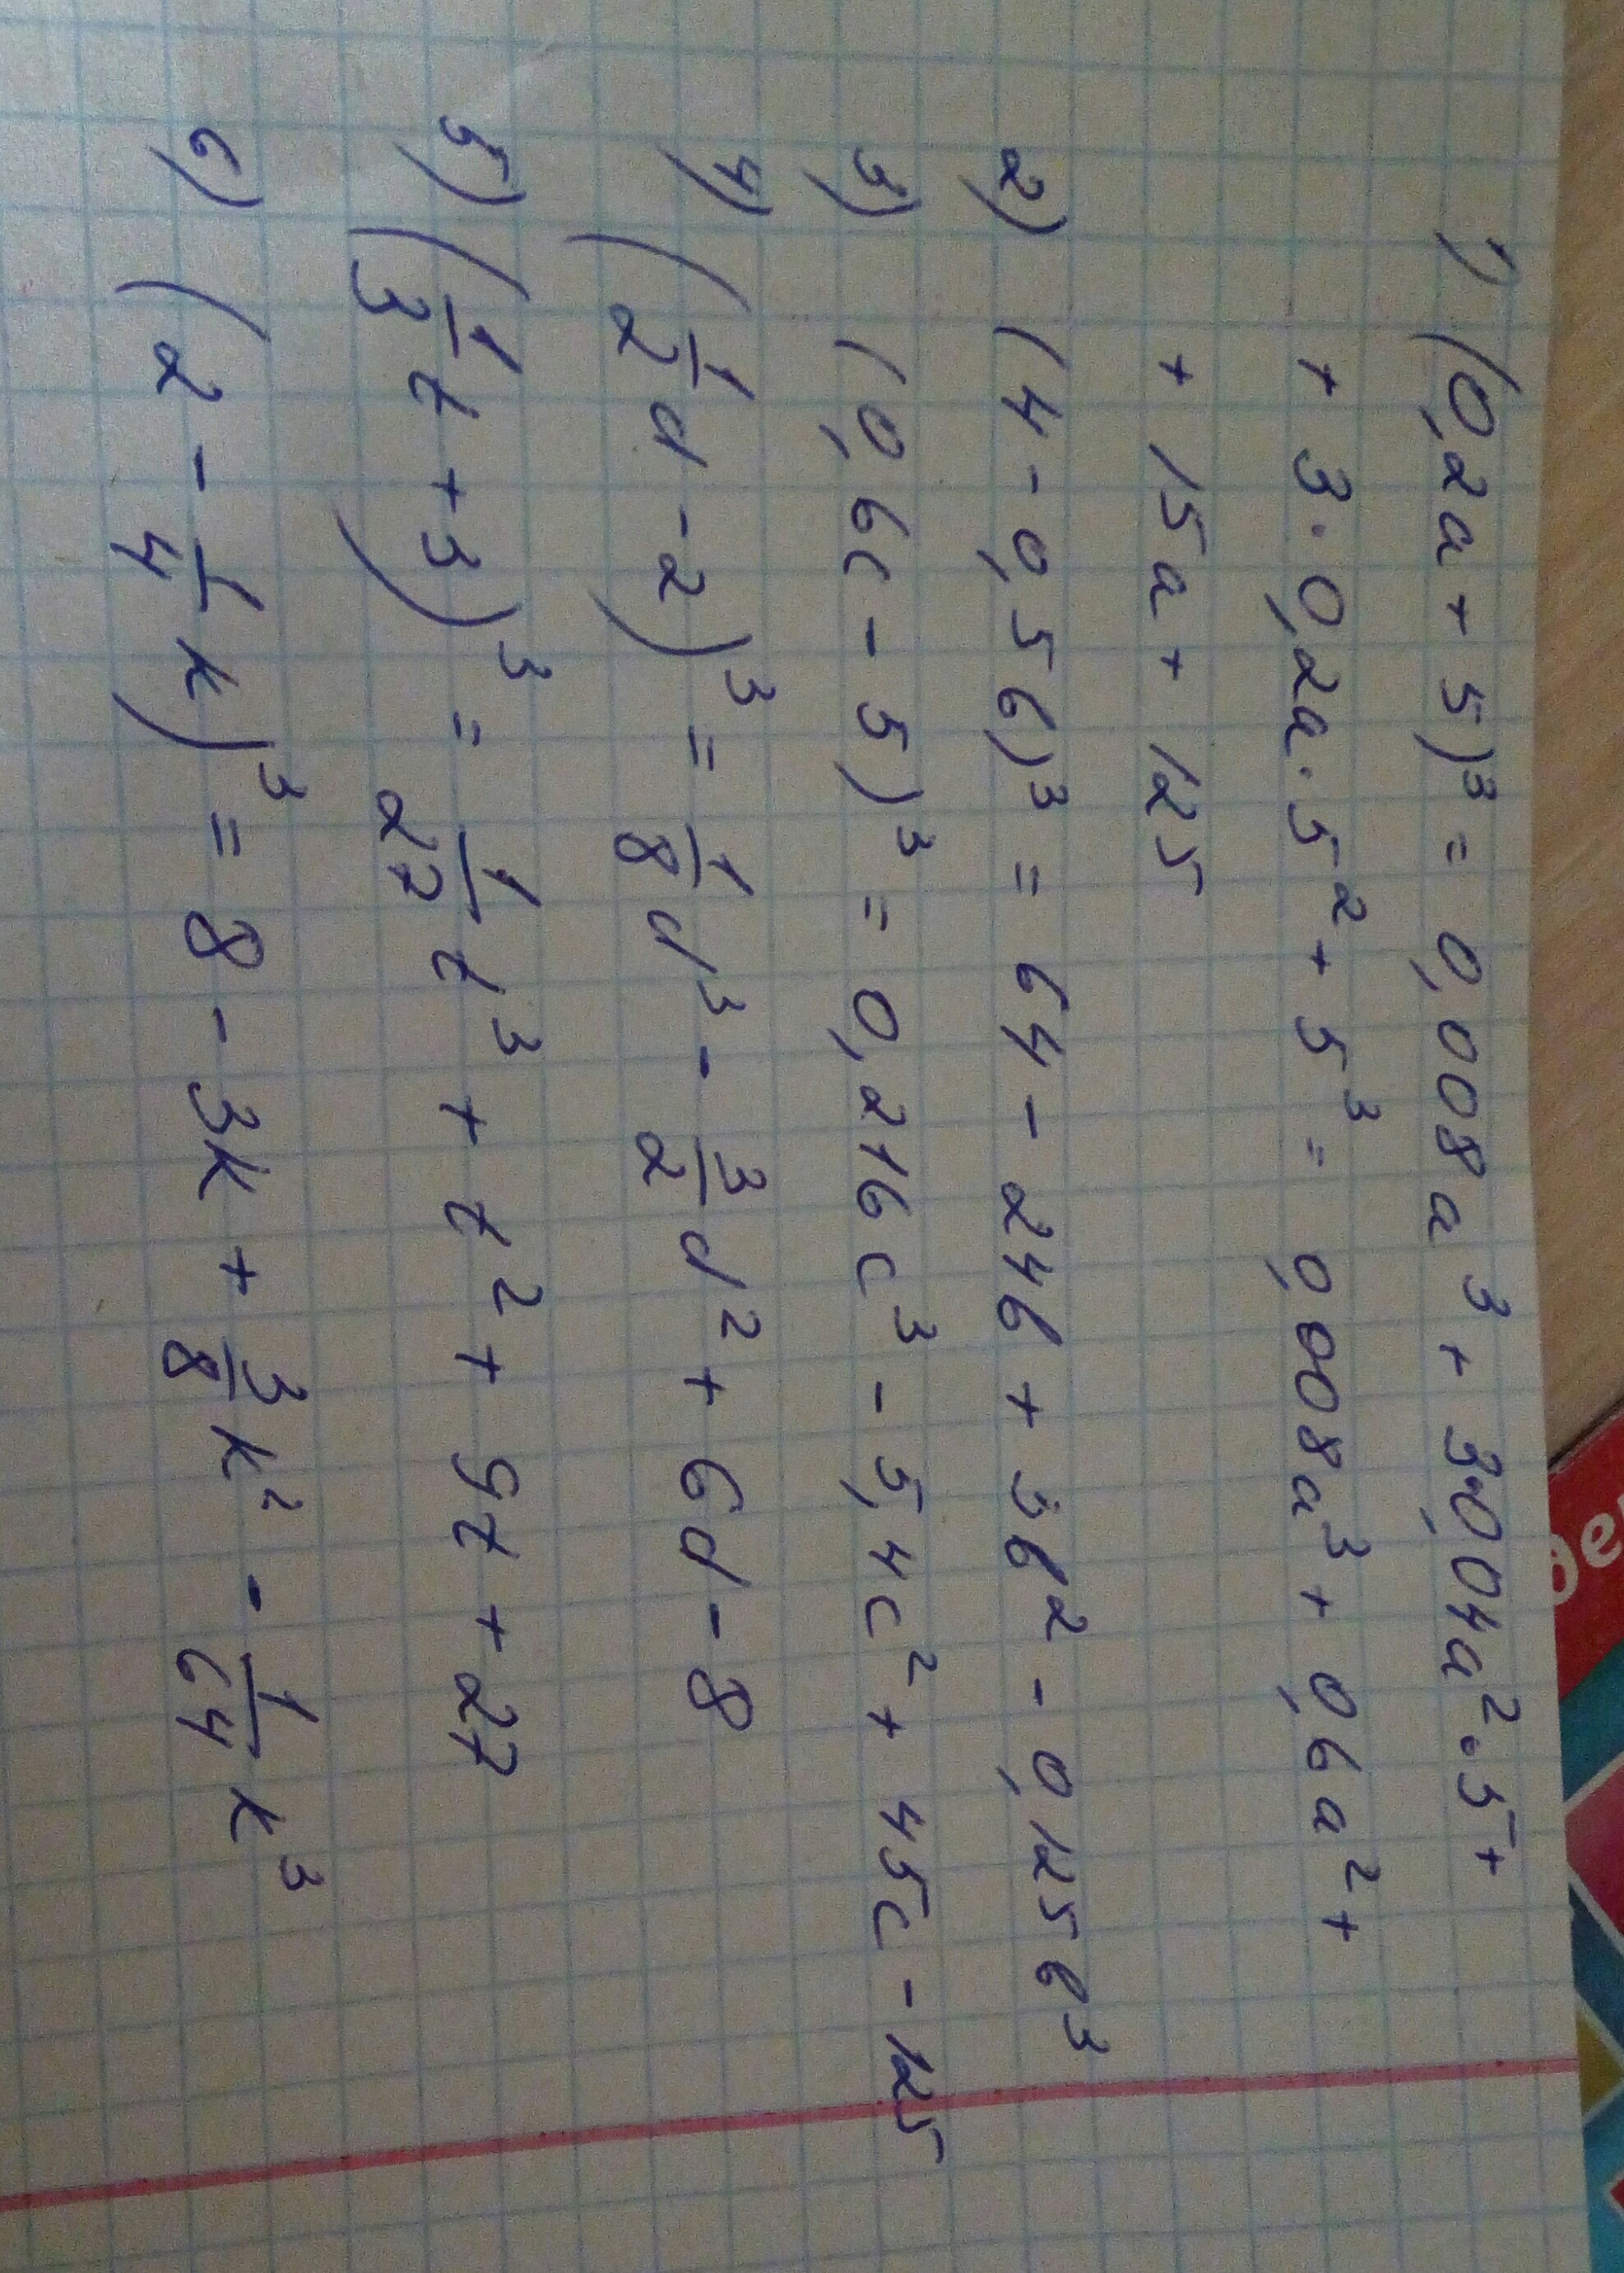 1) (0,2a + 5)³ = 0,008a³ + 3·0,04a²·5 +
+ 3·0,2a·5² + 5³ = 0,008a³ + 0,6a² +
+ 15a + 125
2) (4 - 0,5b)³ = 64 - 24b + 3b² - 0,125b³
3) (0,6c - 5)³ = 0,216c³ - 5,4c² + 45c - 125
4) (1/2 d - 2)³ = 1/8 d³ - 3/2 d² + 6d - 8
5) (1/3 t + 3)³ = 1/27 t³ + t² + 9t + 27
6) (2 - 1/4 k)³ = 8 - 3k + 3/8 k² - 1/64 k³